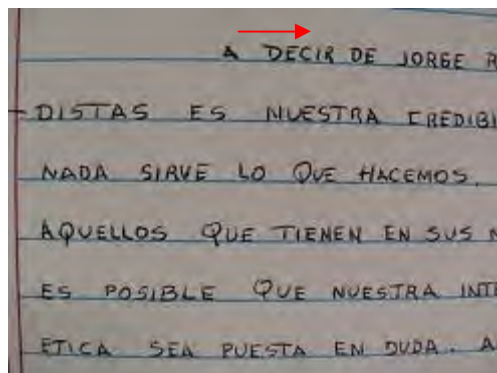 A DECIR DE JORGE R
DISTAS ES NUESTRA CREDIBI
NADA SIRVE LO QUE HACEMOS,
AQUELLOS QUE TIENEN EN SUS
ES POSIBLE QUE NUESTRA INT
ETICA SEA PUESTA EN DUDA. A